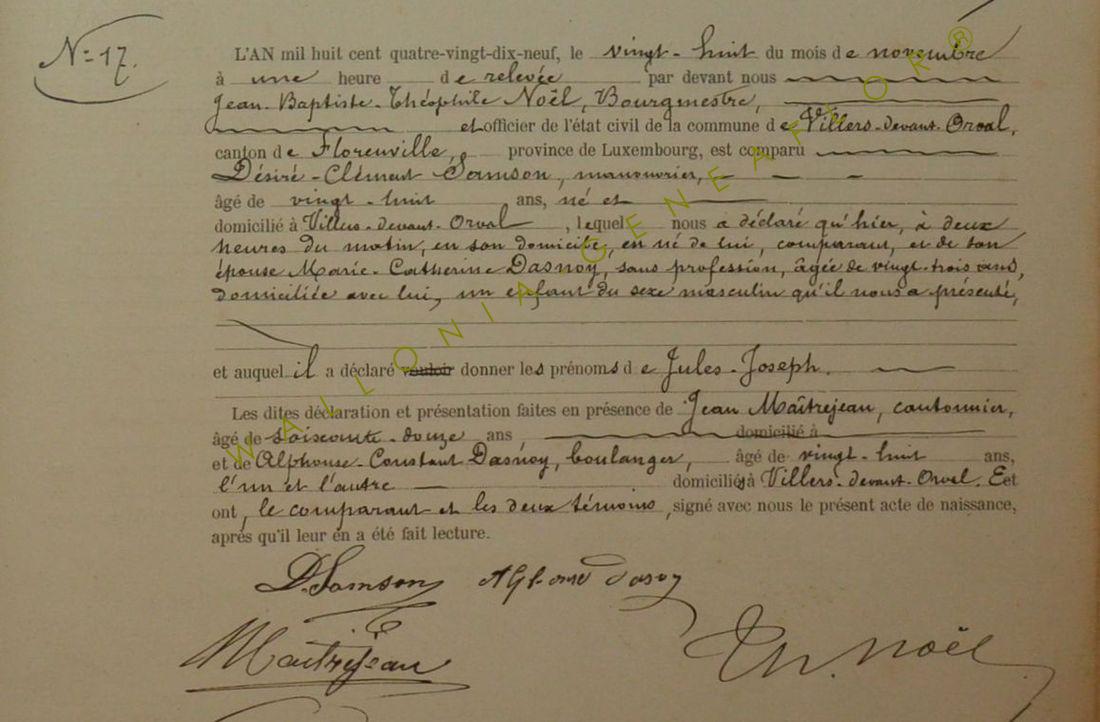 N° 17.
L'AN mil huit cent quatre-vingt-dix-neuf, le vingt-huit du mois de novembre
à une heure de relevée par devant nous
Jean-Baptiste-Théophile Noël, Bourgmestre,
et officier de l'état civil de la commune de Villers-devant-Orval,
canton de Florenville, province de Luxembourg, est comparu
Désiré-Clément Samson, manouvrier,
âgé de vingt-huit ans, né et
domicilié à Villers-devant-Orval, lequel nous a déclaré qu'hier, à deux
heures du matin, en son domicile, en né de lui, comparant, et de son
épouse Marie-Catherine Dasnoy, sans profession, âgée de vingt-trois ans,
domiciliée avec lui, un enfant du sexe masculin qu'il nous a présenté,
et auquel il a déclaré vouloir donner les prénoms de Jules-Joseph.
Les dites déclaration et présentation faites en présence de Jean Maîtrejean, cantonnier,
âgé de soixante-douze ans, domicilié à
et de Alphonse-Constant Dasnoy, boulanger, âgé de vingt-huit ans,
l'un et l'autre domiciliés à Villers-devant-Orval. Et
ont, le comparant et les deux témoins, signé avec nous le présent acte de naissance,
après qu'il leur en a été fait lecture.
D. Samson Alphonse Dasnoy
Maîtrejean Th. Noël
WALLONIA GENEAFLOR ®